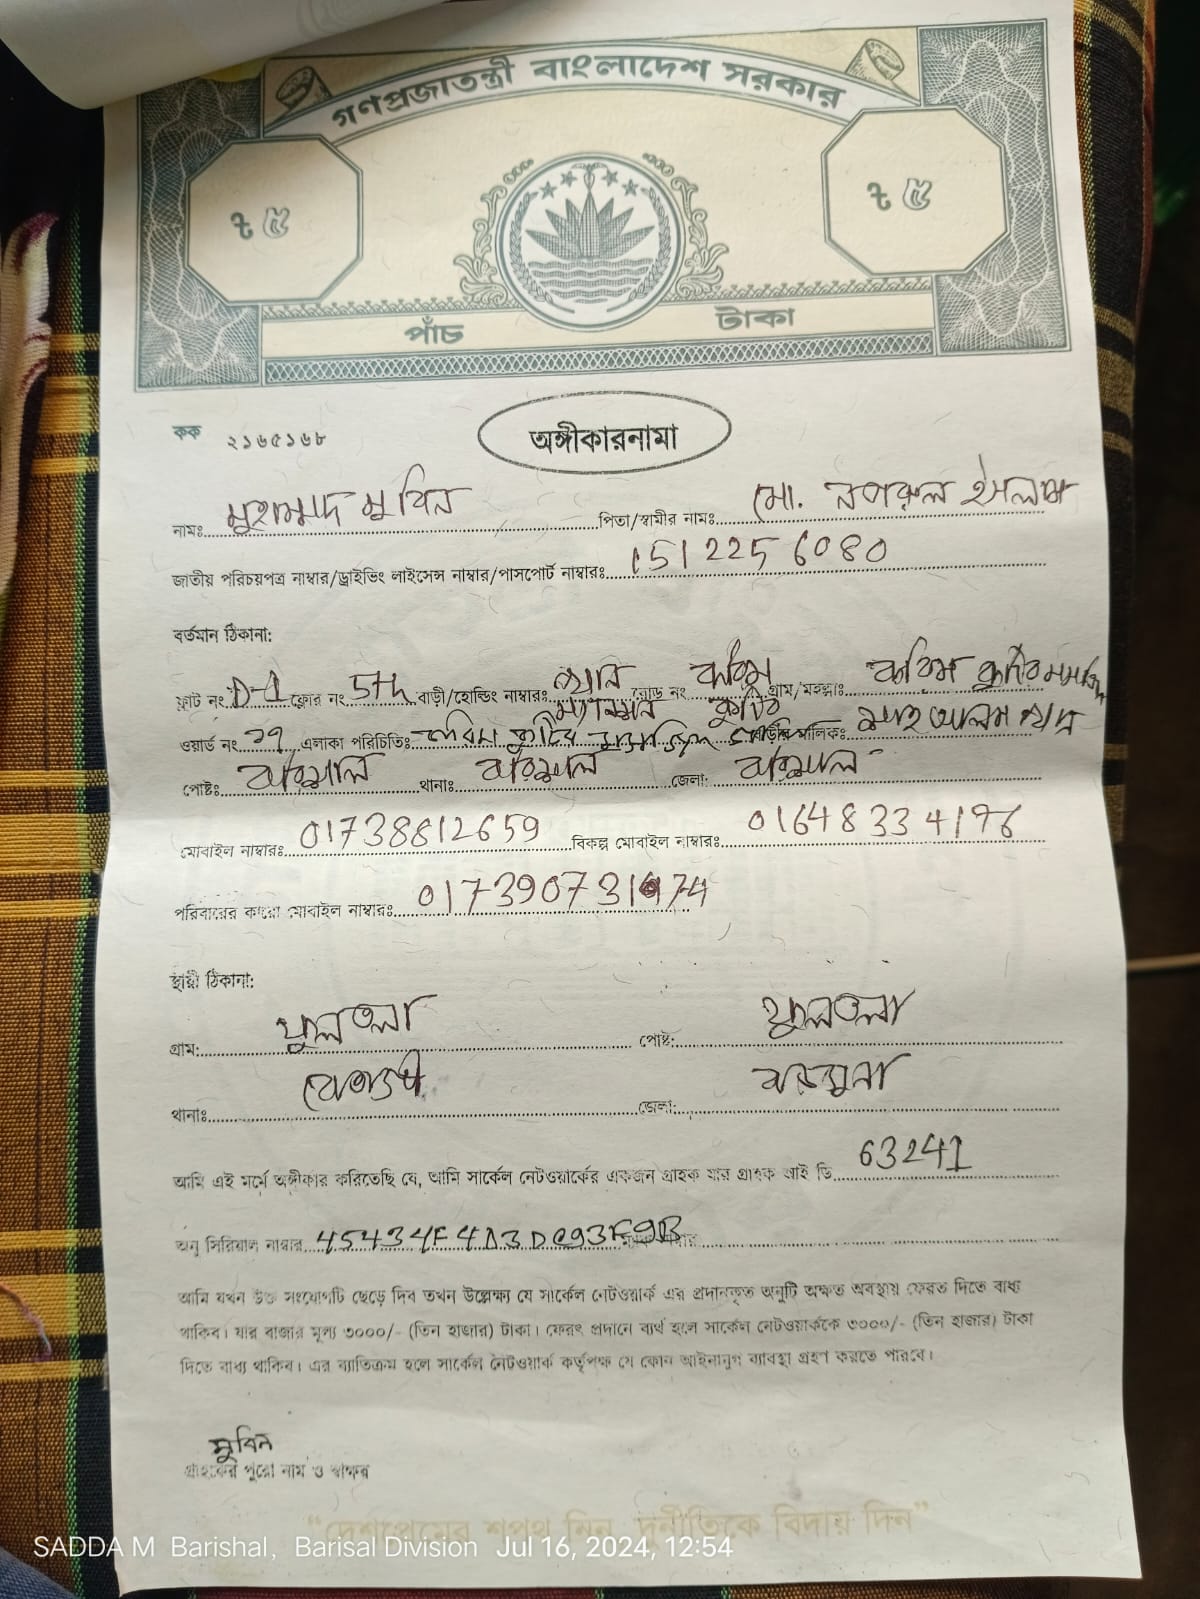 গণপ্রজাতন্ত্রী বাংলাদেশ সরকার
৳ ৫ ৳ ৫
পাঁচ টাকা
কক ২১৬৫১৬৮
অঙ্গীকারনামা
নামঃ মুহাম্মাদ মুবিন পিতা/স্বামীর নামঃ মো. ইসলাম
জাতীয় পরিচয়পত্র নাম্বার/ড্রাইভিং লাইসেন্স নাম্বার/পাসপোর্ট নাম্বারঃ 1512256080
বর্তমান ঠিকানা:
ফ্লাট নং D-1 ফ্লোর নং 5th বাড়ী/হোল্ডিং নাম্বারঃ খান ম্যানশন রোড নং করিম কুটির গ্রাম/মহল্লাঃ করিম কুটির মসজিদ
ওয়ার্ড নং ১৭ এলাকা পরিচিতিঃ করিম কুটির মসজিদ বাড়ীর মালিকঃ শাহ আলম খান
পোষ্টঃ বরিশাল থানাঃ বরিশাল জেলা: বরিশাল
মোবাইল নাম্বারঃ 01738812659 বিকল্প মোবাইল নাম্বারঃ
পরিবারের কারো মোবাইল নাম্বারঃ
স্থায়ী ঠিকানা:
গ্রাম: ফুলতলা পোষ্ট: ফুলতলা
থানাঃ বেতাগী জেলা: বরগুনা
আমি এই মর্মে অঙ্গীকার করিতেছি যে, আমি সার্কেল নেটওয়ার্কের একজন গ্রাহক যার গ্রাহক আই ডি 63241
অনু সিরিয়াল নাম্বার
আমি যখন উক্ত সংযোগটি ছেড়ে দিব তখন উল্লেক্ষ্য যে সার্কেল নেটওয়ার্ক এর প্রদানকৃত অনুটি অক্ষত অবস্থায় ফেরত দিতে বাধ্য
থাকিব। যার বাজার মূল্য ৩০০০/- (তিন হাজার) টাকা। ফেরৎ প্রদানে ব্যর্থ হলে সার্কেল নেটওয়ার্ককে ৩০০০/- (তিন হাজার) টাকা
দিতে বাধ্য থাকিব। এর ব্যাতিক্রম হলে সার্কেল নেটওয়ার্ক কর্তৃপক্ষ যে কোন আইনানুগ ব্যাবস্থা গ্রহণ করতে পারবে।
মুবিন
গ্রাহকের পুরো নাম ও স্বাক্ষর
“দেশপ্রেমের শপথ নিন, দুর্নীতিকে বিদায় দিন”
SADDA M Barishal, Barisal Division Jul 16, 2024, 12:54